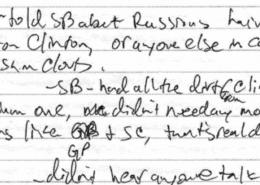 told SB abct Russians havin
on Clinton, or anyone else in ca
.
- SB - had all the dirt Clin
one, didn't need any mo
like GP + SC, that's real d
GP
- didn't hear anyone talk